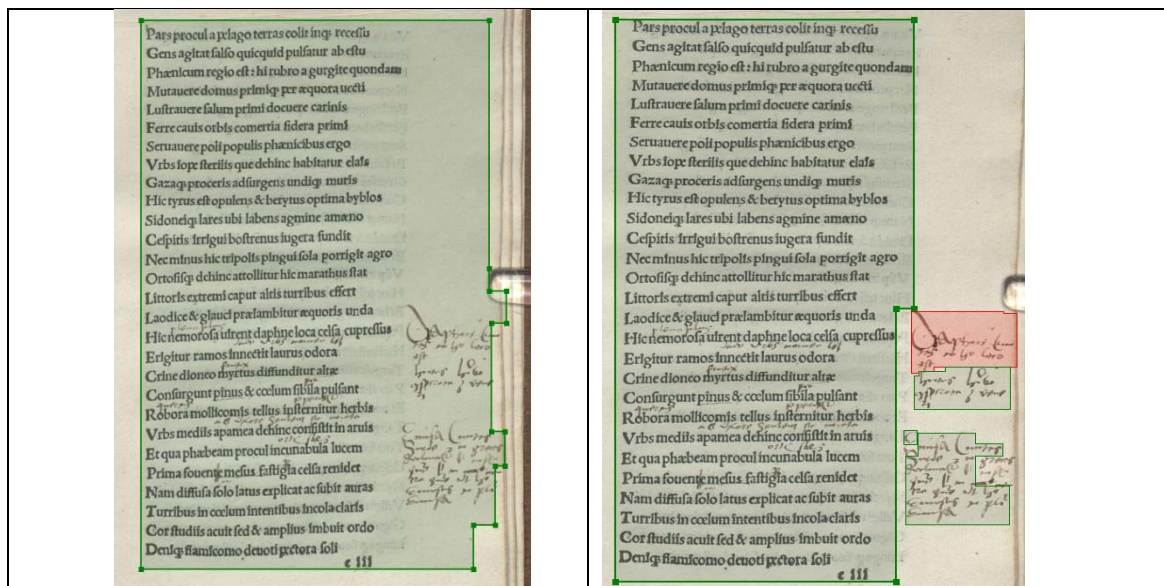 Pars procul a pelago terras colit inq; receſſu
Gens agitat ſalſo quicquid pulſatur ab eſtu
Phænicum regio eſt: hi rubro a gurgite quondam
Mutauere domus primiq; per æquora uecti
Luſtrauere ſalum primi docuere carinis
Ferre cauis orbis comertia ſidera primi
Seruauere poli populis phænicibus ergo
Vrbs iope ſterilis que dehinc habitatur elaſs
Gazaq; proceris adſurgens undiq; muris
Hic tyrus eſt opulens & berytus optima byblos
Sidoneiq; lares ubi labens agmine amæno
Ceſpitis irrigui boſtrenus iugera fundit
Nec minus hic tripolis pingui ſola porrigit agro
Ortoſiq; dehinc attollitur hic marathus ſtat
Littoris extremi caput altis turribus effert
Laodice & glauci prælambitur æquoris unda
Hic nemoroſa uirent daphne loca celſa cupreſſus
Erigitur ramos innectit laurus odora
Crine dioneo myrtus diffunditur altæ
Conſurgunt pinus & cœlum ſibila pulſant
Robora mollicomis tellus inſternitur herbis
Vrbs mediis apamea dehinc conſiſtit in aruis
Et qua phæbeam procul incunabula lucem
Prima fouent meſus faſtigia celſa renidet
Nam diffuſa ſolo latus explicat ac ſubit auras
Turribus in cœlum intentibus incola claris
Cor ſtudiis acuit ſed & amplius imbuit ordo
Deniq; flamicomo deuoti pectora ſoli
c iii
Pars procul a pelago terras colit inq; receſſu
Gens agitat ſalſo quicquid pulſatur ab eſtu
Phænicum regio eſt: hi rubro a gurgite quondam
Mutauere domus primiq; per æquora uecti
Luſtrauere ſalum primi docuere carinis
Ferre cauis orbis comertia ſidera primi
Seruauere poli populis phænicibus ergo
Vrbs iope ſterilis que dehinc habitatur elaſs
Gazaq; proceris adſurgens undiq; muris
Hic tyrus eſt opulens & berytus optima byblos
Sidoneiq; lares ubi labens agmine amæno
Ceſpitis irrigui boſtrenus iugera fundit
Nec minus hic tripolis pingui ſola porrigit agro
Ortoſiq; dehinc attollitur hic marathus ſtat
Littoris extremi caput altis turribus effert
Laodice & glauci prælambitur æquoris unda
Hic nemoroſa uirent daphne loca celſa cupreſſus
Erigitur ramos innectit laurus odora
Crine dioneo myrtus diffunditur altæ
Conſurgunt pinus & cœlum ſibila pulſant
Robora mollicomis tellus inſternitur herbis
Vrbs mediis apamea dehinc conſiſtit in aruis
Et qua phæbeam procul incunabula lucem
Prima fouent meſus faſtigia celſa renidet
Nam diffuſa ſolo latus explicat ac ſubit auras
Turribus in cœlum intentibus incola claris
Cor ſtudiis acuit ſed & amplius imbuit ordo
Deniq; flamicomo deuoti pectora ſoli
c iii